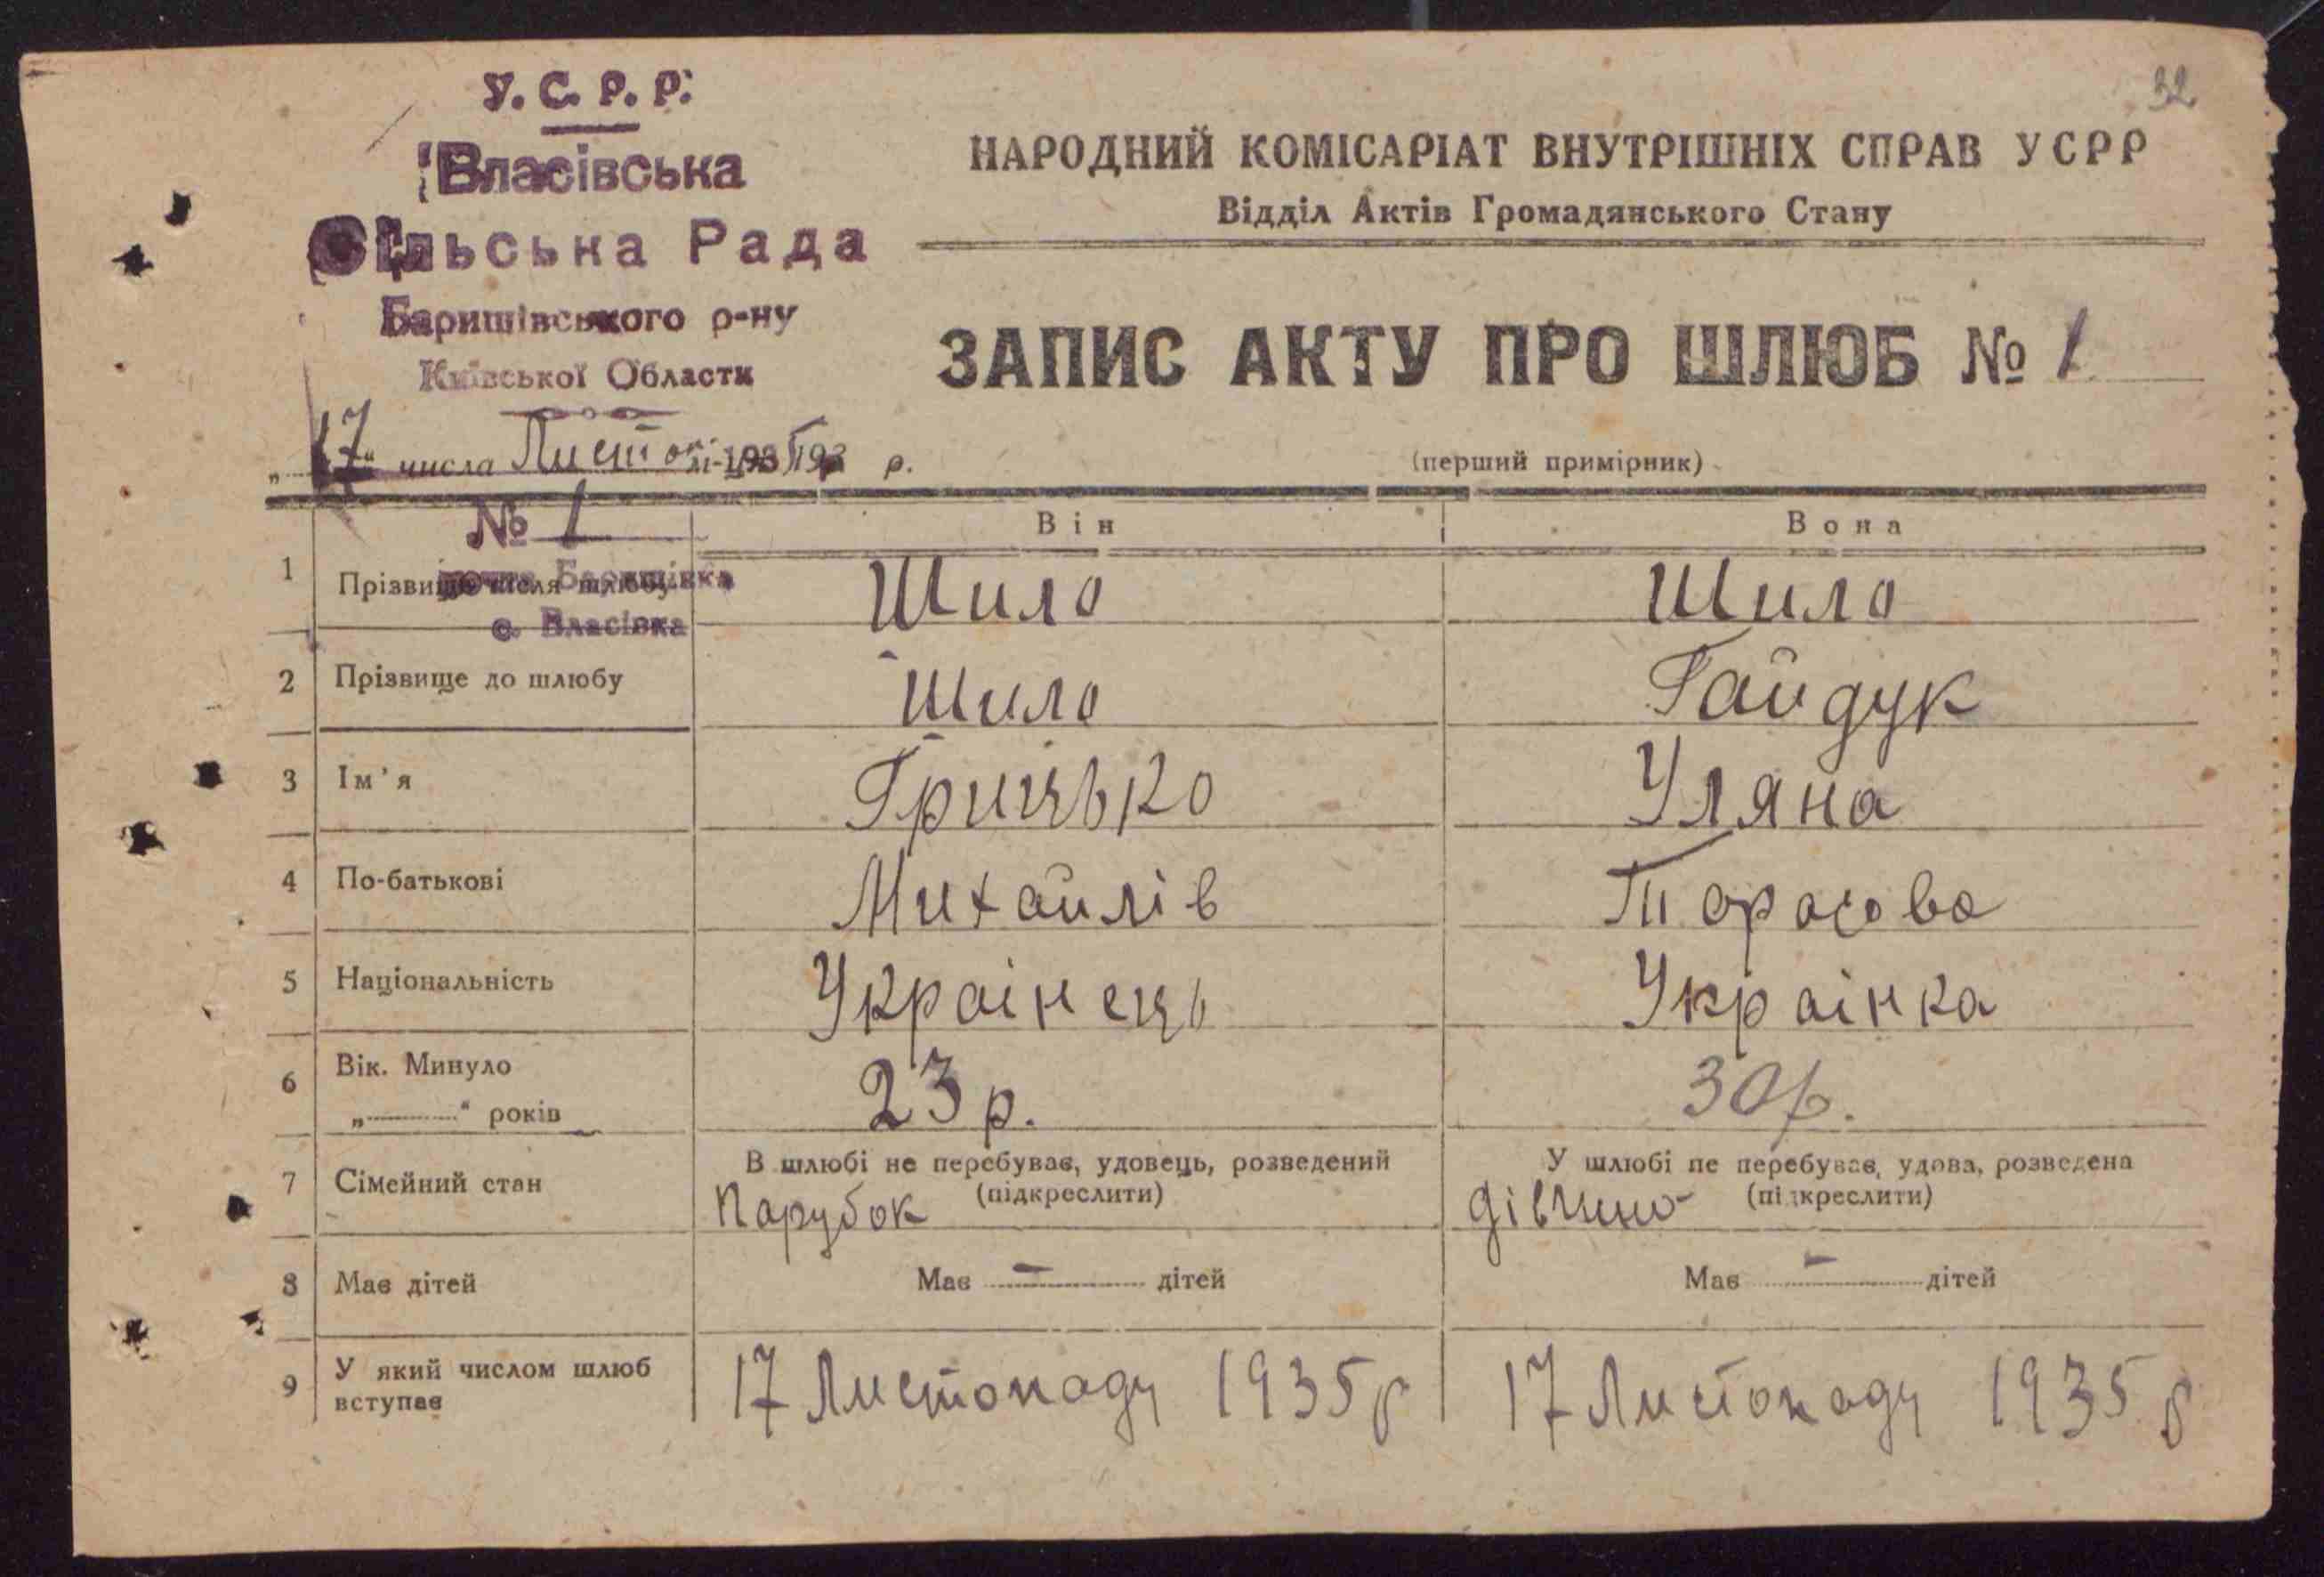 32
У.С.Р.Р.
Власівська
Сільська Рада
Баришівського р-ну
Київської Области
НАРОДНИЙ КОМІСАРІАТ ВНУТРІШНІХ СПРАВ УСРР
Відділ Актів Громадянського Стану
ЗАПИС АКТУ ПРО ШЛЮБ № 1
(перший примірник)
„17" числа Листоп 193 р.
№ 1
пошта Баришівка
с. Власівка
Він Вона
1 Прізвище після шлюбу Шило Шило
2 Прізвище до шлюбу Шило Гайдук
3 Ім'я Грицько Уляна
4 По-батькові Михайлів Тарасова
5 Національність Украінець Украінка
6 Вік. Минуло „ " років 23 р. 30 р.
7 Сімейний стан В шлюбі не перебуває, удовець, розведений (підкреслити) У шлюбі не перебуває, удова, розведена (підкреслити)
Парубок дівчина
8 Має дітей Має – дітей Має – дітей
9 У який числом шлюб вступає 17 Листопаду 1935 р 17 Листопаду 1935 р